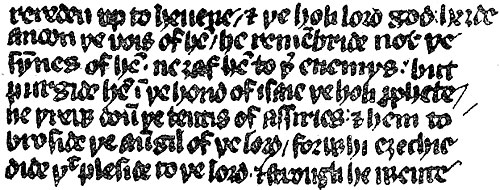 rereden up to heuene/ & þe holi lord god: herde
anoon þe vois of hē/ he remēbride not þe
sȳnes of hē. ne ȝaf hē to þͤ enemys: but
purgide hē ī þe hond of isaie þe holi ꝓphete/
he þrew doū þe tentis of assiries: & hem to
broside þe aungil of þe lord/ forwhi ezechie
dide þͭ pleside to þe lord. & strongli he wente